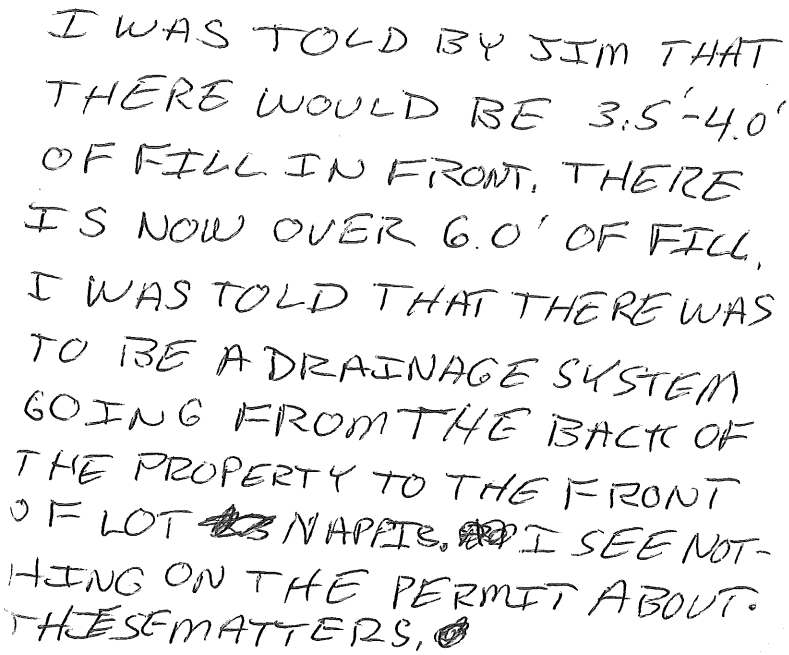 I WAS TOLD BY JIM THAT
THERE WOULD BE 3.5'-4.0'
OF FILL IN FRONT. THERE
IS NOW OVER 6.0' OF FILL.
I WAS TOLD THAT THERE WAS
TO BE A DRAINAGE SYSTEM
GOING FROM THE BACK OF
THE PROPERTY TO THE FRONT
OF LOT I SEE NOT-
HING ON THE PERMIT ABOUT.
THESE MATTERS.